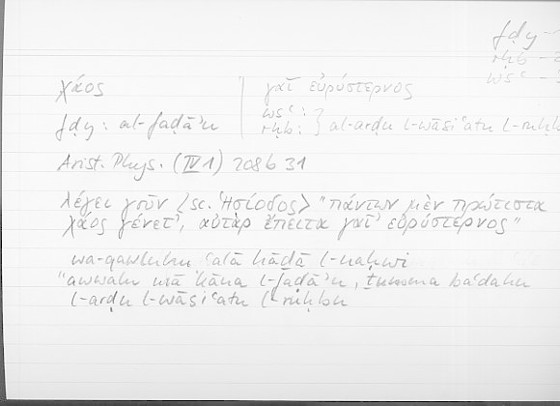 fḍy
rḥb
wsʿ
χάος | γαῖ' εὐρύστερνος
wsʿ:
fḍy: al-faḍāʾu | rḥb: } al-arḍu l-wāsiʿatu l-ruḥb
Arist. Phys. (IV 1) 208b 31
λέγει γοῦν <sc. Ἡσίοδος> "πάντων μὲν πρώτιστα
χάος γένετ', αὐτὰρ ἔπειτα γαῖ' εὐρύστερνος"
wa-qawluhu ʿalā hāḏā l-naḥwi
"awwalu mā kāna l-faḍāʾu, ṯumma baʿdahu
l-arḍu l-wāsiʿatu l-ruḥbu